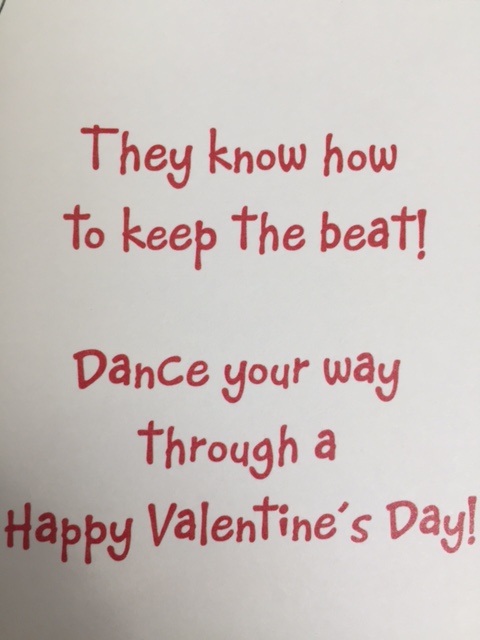 They know how
to keep the beat!
Dance your way
through a
Happy Valentine's Day!